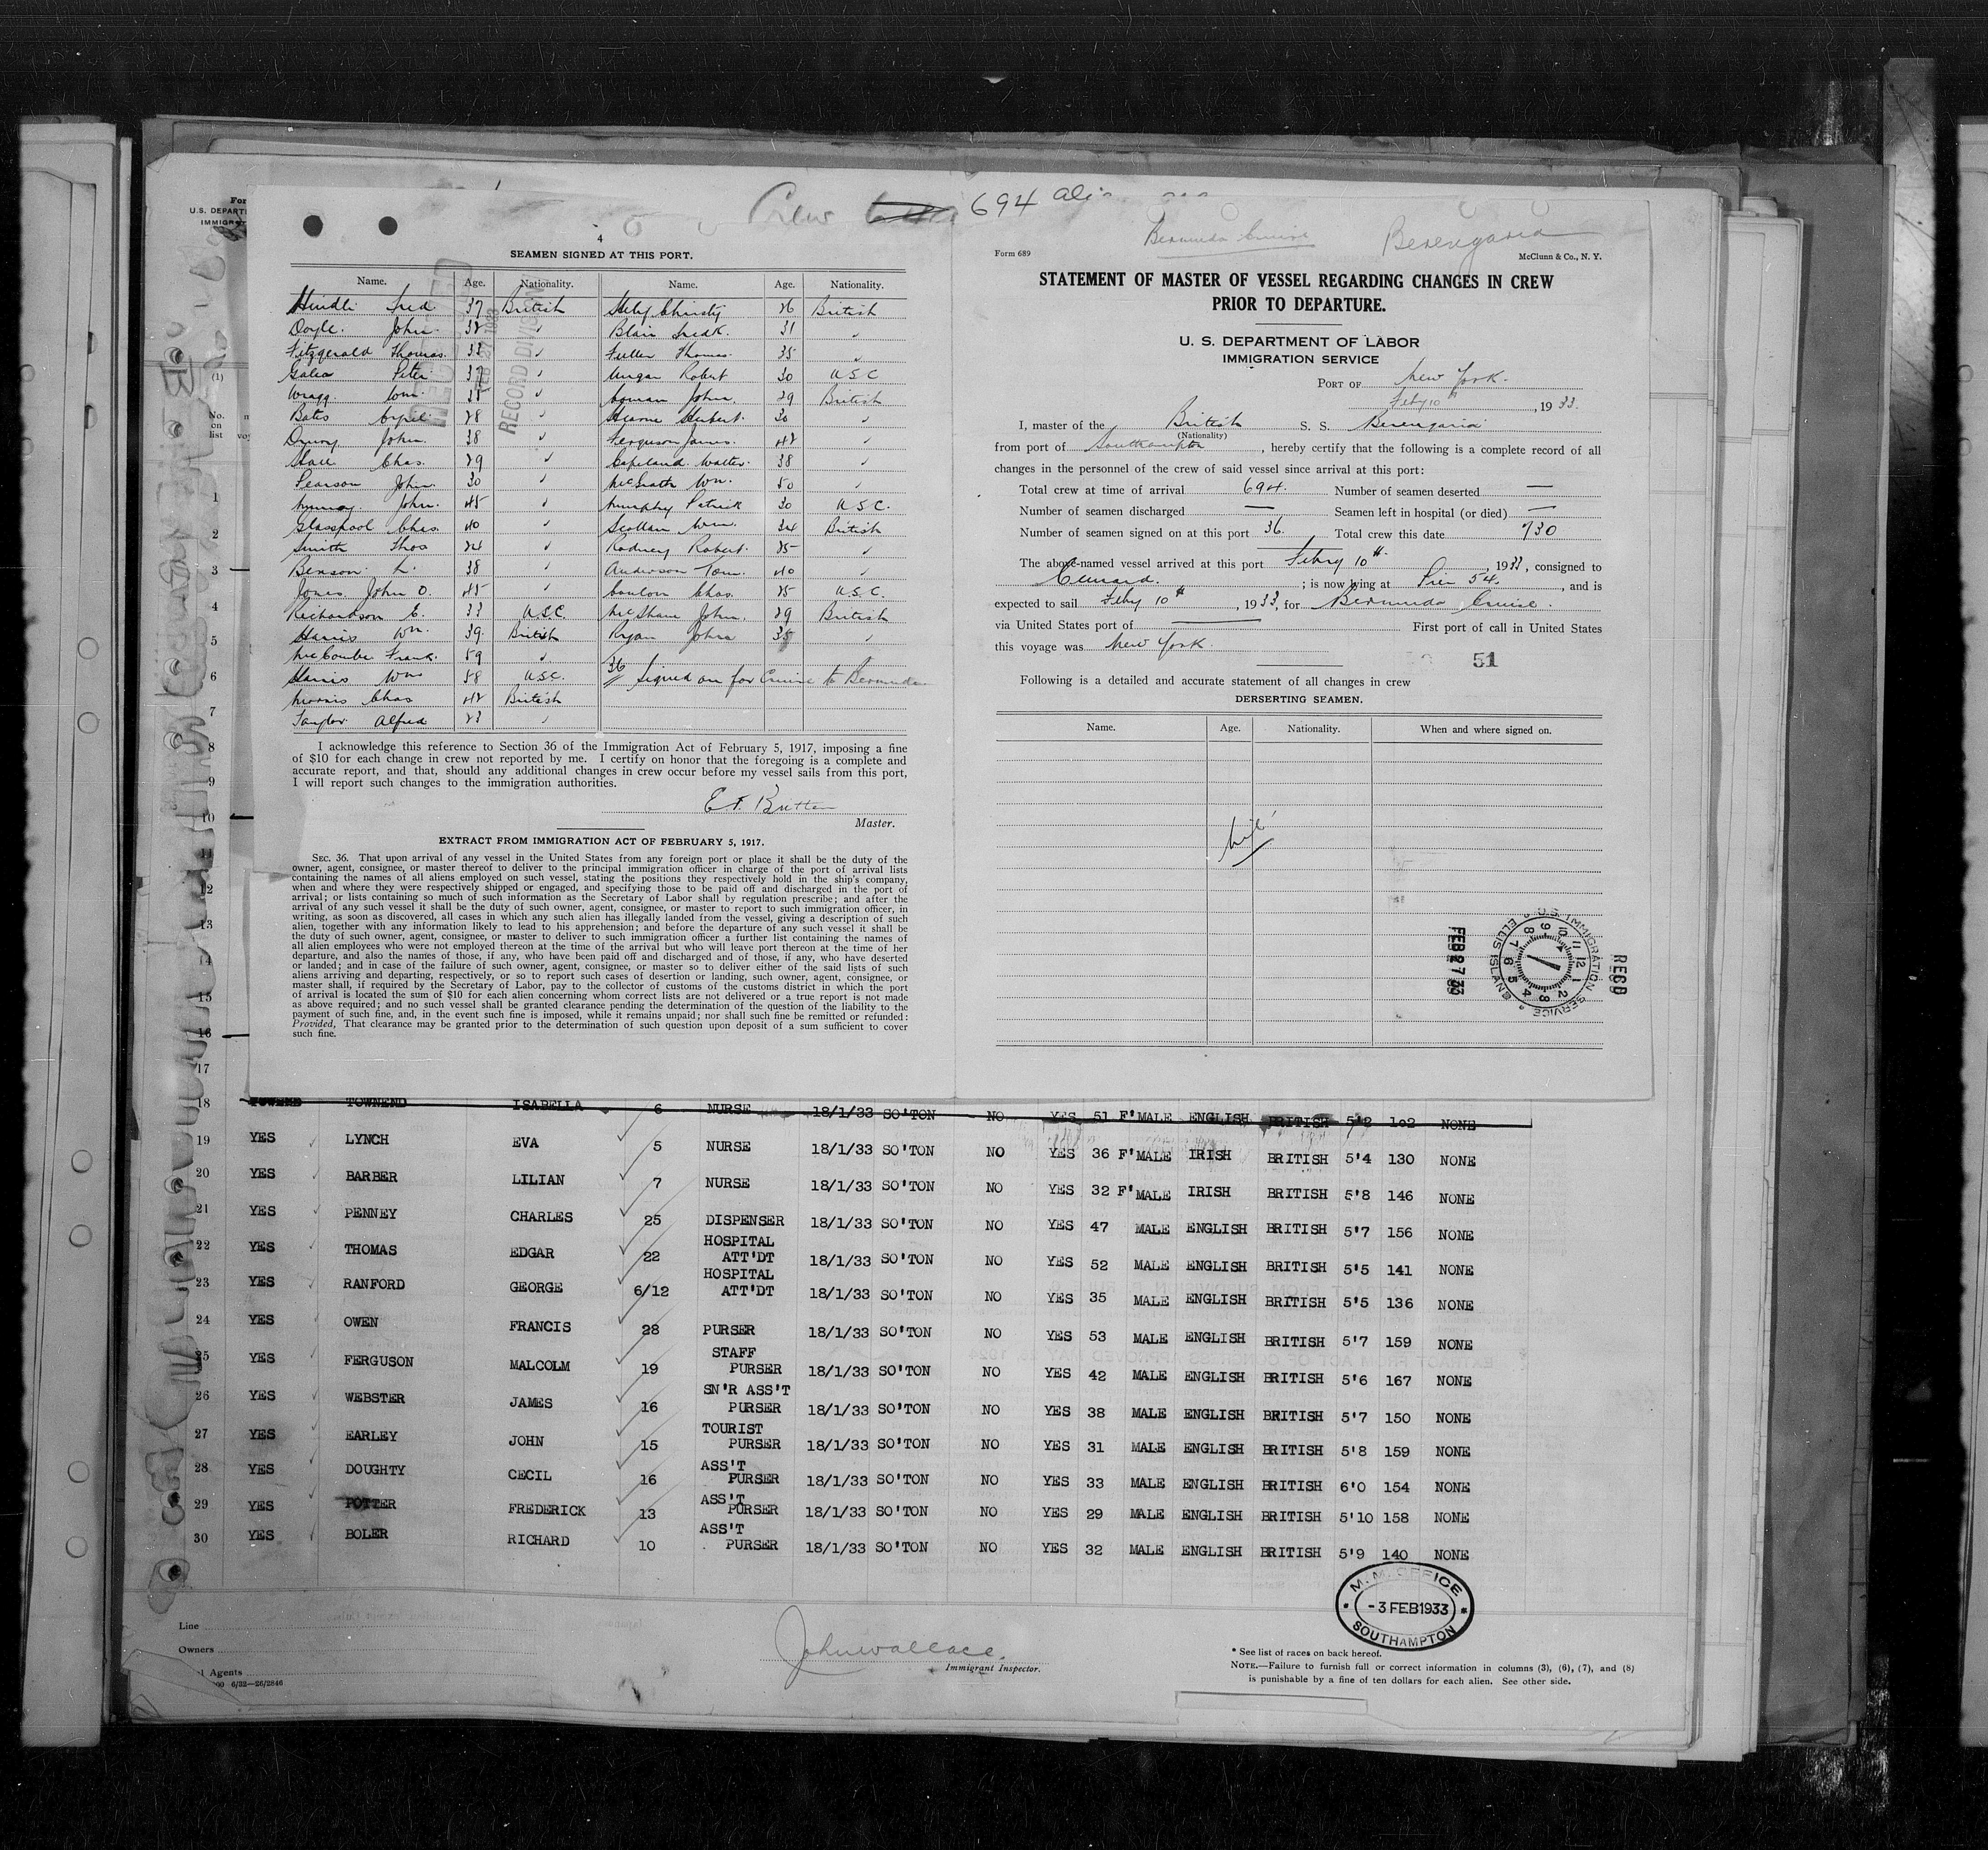 Crew 694
4
SEAMEN SIGNED AT THIS PORT.
Name. Age. Nationality. Name. Age. Nationality.
Hindli Fred 37 British Christy 26 British
Doyle. John. 32 " Blair Fredk. 31 "
Fitzgerald Thomas. 33 " Fuller Thomas. 35 "
Galea Peter " Ungar Robert 30 U S C
Wragg. Wm. " John. 29 British
Bates Cyril 28 " Hearne Herbert. 30 "
Drury John. 38 " Ferguson James. 42 "
Chas. 29 " Copeland. Walter. 38 "
Pearson John. 30 " McGrath Wm. 50 "
Murray John. 45 " Murphy Patrick 30 U S C.
Glasspool Chas. 40 " Scollan Wm. 34 British
Smith Thos 24 " Rodney Robert. 25 "
Benson. H. 38 " Anderson Tom. 40 "
Jones John O. 45 " Conlon Chas. 25 U.S.C.
Richardson E. 33 U.S.C. McShane John. 29 British
Harris Wm. 39. British Ryan John 35 "
McCombe Frank. 59 "
Harris Wm 58 U.S.C. 36 Signed on for Cruise to Bermuda
Morris Chas 42 British
Taylor Alfred 23 "
REGISTERED
FEB 27 1933
RECORD DIVISION
I acknowledge this reference to Section 36 of the Immigration Act of February 5, 1917, imposing a fine
of $10 for each change in crew not reported by me. I certify on honor that the foregoing is a complete and
accurate report, and that, should any additional changes in crew occur before my vessel sails from this port,
I will report such changes to the immigration authorities.
E.T. Britten
Master.
EXTRACT FROM IMMIGRATION ACT OF FEBRUARY 5, 1917.
SEC. 36. That upon arrival of any vessel in the United States from any foreign port or place it shall be the duty of the
owner, agent, consignee, or master thereof to deliver to the principal immigration officer in charge of the port of arrival lists
containing the names of all aliens employed on such vessel, stating the positions they respectively hold in the ship's company,
when and where they were respectively shipped or engaged, and specifying those to be paid off and discharged in the port of
arrival; or lists containing so much of such information as the Secretary of Labor shall by regulation prescribe; and after the
arrival of any such vessel it shall be the duty of such owner, agent, consignee, or master to report to such immigration officer, in
writing, as soon as discovered, all cases in which any such alien has illegally landed from the vessel, giving a description of such
alien, together with any information likely to lead to his apprehension; and before the departure of any such vessel it shall be
the duty of such owner, agent, consignee, or master to deliver to such immigration officer a further list containing the names of
all alien employees who were not employed thereon at the time of the arrival but who will leave port thereon at the time of her
departure, and also the names of those, if any, who have been paid off and discharged and of those, if any, who have deserted
or landed; and in case of the failure of such owner, agent, consignee, or master so to deliver either of the said lists of such
aliens arriving and departing, respectively, or so to report such cases of desertion or landing, such owner, agent, consignee, or
master shall, if required by the Secretary of Labor, pay to the collector of customs of the customs district in which the port
of arrival is located the sum of $10 for each alien concerning whom correct lists are not delivered or a true report is not made
as above required; and no such vessel shall be granted clearance pending the determination of the question of the liability to the
payment of such fine, and, in the event such fine is imposed, while it remains unpaid; nor shall such fine be remitted or refunded:
Provided, That clearance may be granted prior to the determination of such question upon deposit of a sum sufficient to cover
such fine.
Bermuda Cruise Berengaria
Form 689 McClunn & Co., N. Y.
STATEMENT OF MASTER OF VESSEL REGARDING CHANGES IN CREW
PRIOR TO DEPARTURE.
U. S. DEPARTMENT OF LABOR
IMMIGRATION SERVICE
PORT OF New York.
Feby 10th, 1933.
I, master of the British S. S. Berengaria
(Nationality)
from port of Southampton, hereby certify that the following is a complete record of all
changes in the personnel of the crew of said vessel since arrival at this port:
Total crew at time of arrival 694. Number of seamen deserted —
Number of seamen discharged — Seamen left in hospital (or died) —
Number of seamen signed on at this port 36. Total crew this date 730
The above-named vessel arrived at this port Febry 10th. 1933, consigned to
Cunard. ; is now lying at Pier 54., and is
expected to sail Feby 10th, 1933, for Bermuda Cruise.
via United States port of — First port of call in United States
this voyage was New York.
51
Following is a detailed and accurate statement of all changes in crew
DESERTING SEAMEN.
Name. Age. Nationality. When and where signed on.
Nil
U.S. IMMIGRATION SERVICE ELLIS ISLAND
FEB 27 33
RECD
18 TOWNEND ISABELLA 6 NURSE 18/1/33 SO'TON NO YES 51 F'MALE ENGLISH BRITISH 5'2 102 NONE
19 YES LYNCH EVA 5 NURSE 18/1/33 SO'TON NO YES 36 F'MALE IRISH BRITISH 5'4 130 NONE
20 YES BARBER LILIAN 7 NURSE 18/1/33 SO'TON NO YES 32 F'MALE IRISH BRITISH 5'8 146 NONE
21 YES PENNEY CHARLES 25 DISPENSER 18/1/33 SO'TON NO YES 47 MALE ENGLISH BRITISH 5'7 156 NONE
22 YES THOMAS EDGAR 22 HOSPITAL ATT'DT 18/1/33 SO'TON NO YES 52 MALE ENGLISH BRITISH 5'5 141 NONE
23 YES RANFORD GEORGE 6/12 HOSPITAL ATT'DT 18/1/33 SO'TON NO YES 35 MALE ENGLISH BRITISH 5'5 136 NONE
24 YES OWEN FRANCIS 28 PURSER 18/1/33 SO'TON NO YES 53 MALE ENGLISH BRITISH 5'7 159 NONE
25 YES FERGUSON MALCOLM 19 STAFF PURSER 18/1/33 SO'TON NO YES 42 MALE ENGLISH BRITISH 5'6 167 NONE
26 YES WEBSTER JAMES 16 SN'R ASS'T PURSER 18/1/33 SO'TON NO YES 38 MALE ENGLISH BRITISH 5'7 150 NONE
27 YES EARLEY JOHN 15 TOURIST PURSER 18/1/33 SO'TON NO YES 31 MALE ENGLISH BRITISH 5'8 159 NONE
28 YES DOUGHTY CECIL 16 ASS'T PURSER 18/1/33 SO'TON NO YES 33 MALE ENGLISH BRITISH 6'0 154 NONE
29 YES POTTER FREDERICK 13 ASS'T PURSER 18/1/33 SO'TON NO YES 29 MALE ENGLISH BRITISH 5'10 158 NONE
30 YES BOLER RICHARD 10 ASS'T PURSER 18/1/33 SO'TON NO YES 32 MALE ENGLISH BRITISH 5'9 140 NONE
M. M. OFFICE
-3 FEB 1933
SOUTHAMPTON
Line
Owners
Agents
6/32—26/2846
John Wallace.
Immigrant Inspector.
* See list of races on back hereof.
NOTE.—Failure to furnish full or correct information in columns (3), (6), (7), and (8)
is punishable by a fine of ten dollars for each alien. See other side.